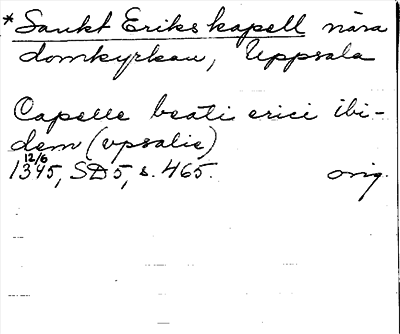 * Sankt Eriks kapell nära
domkyrkan, Uppsala
Capelle beati erici ibi-
dem (vpsalie)
12/6
1345, SD5, s. 465. orig.